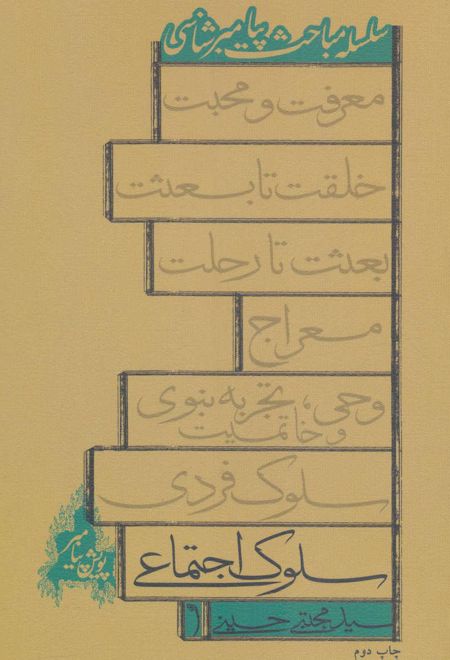 سلسله مباحث پیامبرشناسی
معرفت و محبت
خلقت تا بعثت
بعثت تا رحلت
معراج
وحی، تجربه نبوی
و خاتمیت
سلوک فردی
سلوک اجتماعی
پویش پیامبر
سید مجتبی حسینی
۶
چاپ دوم